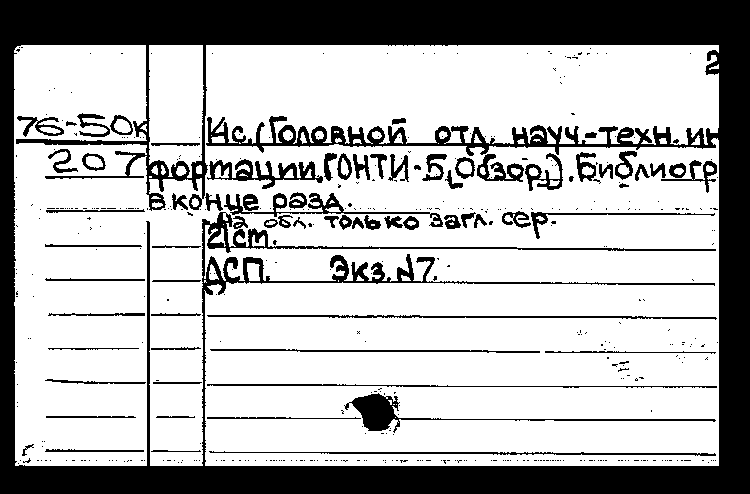 2
76-50к 14с. (Головной отд. науч.-техн. ин
207 формации. ГОНТИ-Б, [Обзор]). Библиогр
в конце разд.
На обл. только загл. сер.
2|ст.
ДСП. Экз. N7.